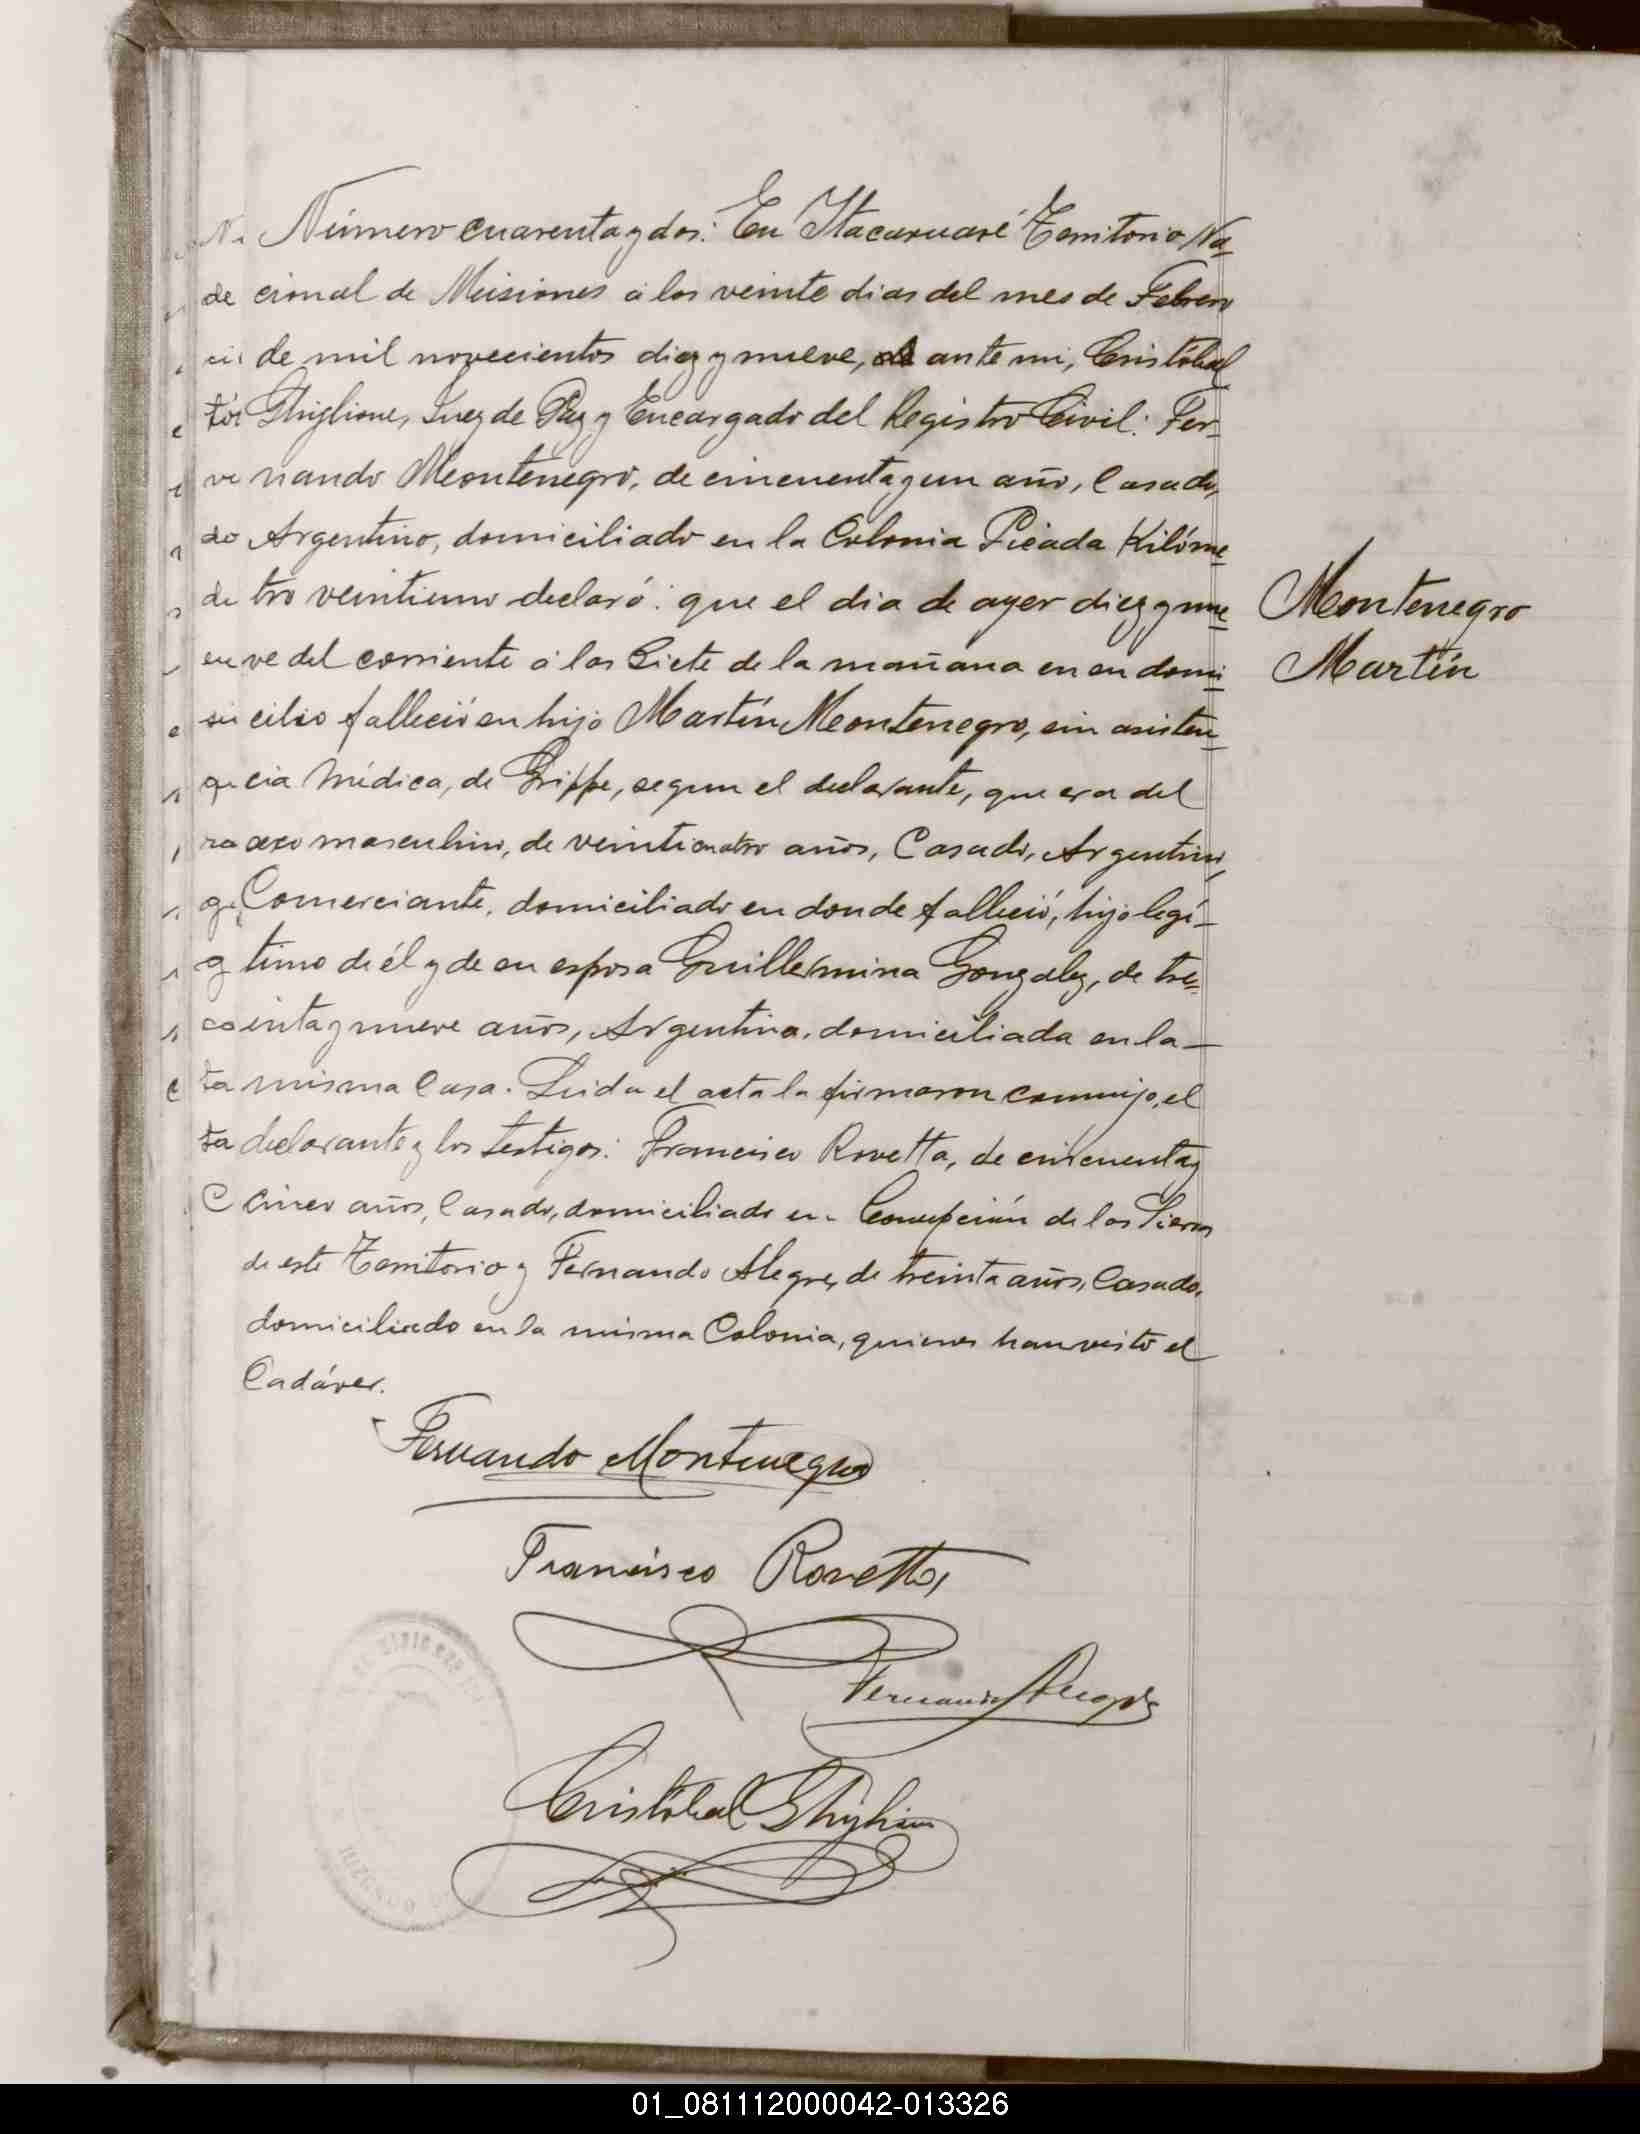 Número cuarenta y dos: En Itacaruaré Territorio Na-
cional de Misiones á los veinte dias del mes de Febrero
de mil novecientos diez y nueve, ante mi, Cristóbal
Ghiglione, Juez de Paz y Encargado del Registro Civil: Fer-
nando Montenegro, de cincuenta y un año, Casado,
Argentino, domiciliado en la Colonia Picada Kilóme
tro veintiuno declaró: que el dia de ayer diez y nue
ve del corriente á las Siete de la mañana en su domi
cilio falleció su hijo Martín Montenegro, sin asisten
cia Médica, de Grippe, segun el declarante, que era del
sexo masculino, de veinticuatro años, Casado, Argentino,
Comerciante, domiciliado en donde falleció, hijo legí-
timo de él y de su esposa Guillermina Gonzalez, de tre-
inta y nueve años, Argentina, domiciliada en la-
misma Casa. Leida el acta la firmaron conmigo, el
declarante y los testigos: Francisco Rovetta, de cincuenta y
Cinco años, Casado, domiciliado en Concepción de las Sierras
de este Territorio y Fernando Alegre, de treinta años, Casado,
domiciliado en la misma Colonia, quienes han visto el
Cadáver.
Montenegro
Martín
Fernando Montenegro
Francisco Rovetta
Fernando Alegre
Cristóbal Ghiglione
01_081112000042-013326